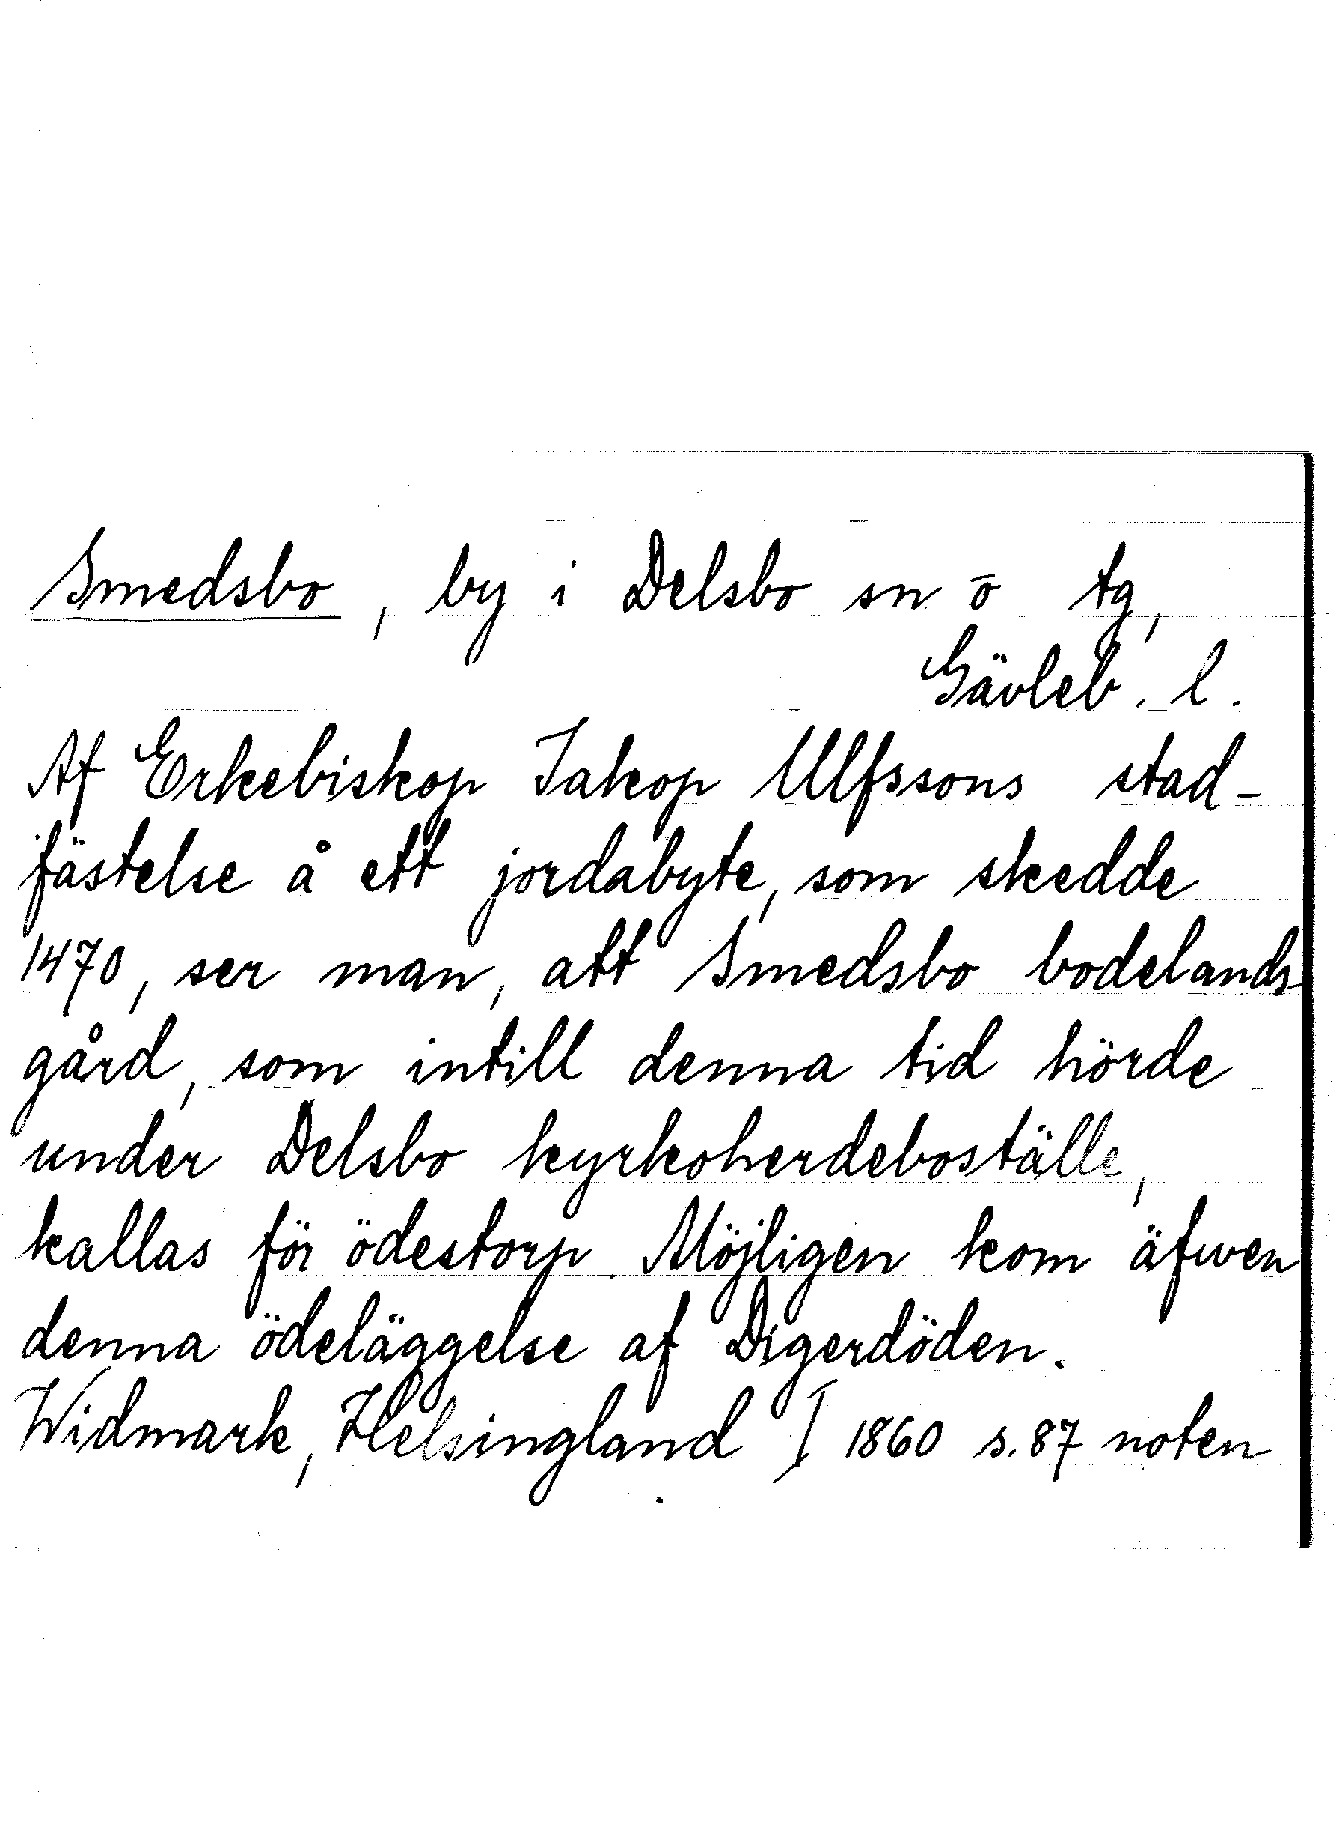 Smedsbo, by i Delsbo sn ō tg,
Gävleb. l.
Af Erkebiskop Jakop Ulfssons stad-
fästelse å ett jordabyte, som skedde
1470, ser man, att Smedsbo bodelands
gård, som intill denna tid hörde
under Delsbo kyrkoherdeboställe,
kallas för ödestorp. Möjligen kom äfwen
denna ödeläggelse af Digerdöden.
Widmark, Helsingland I 1860 s. 87 noten